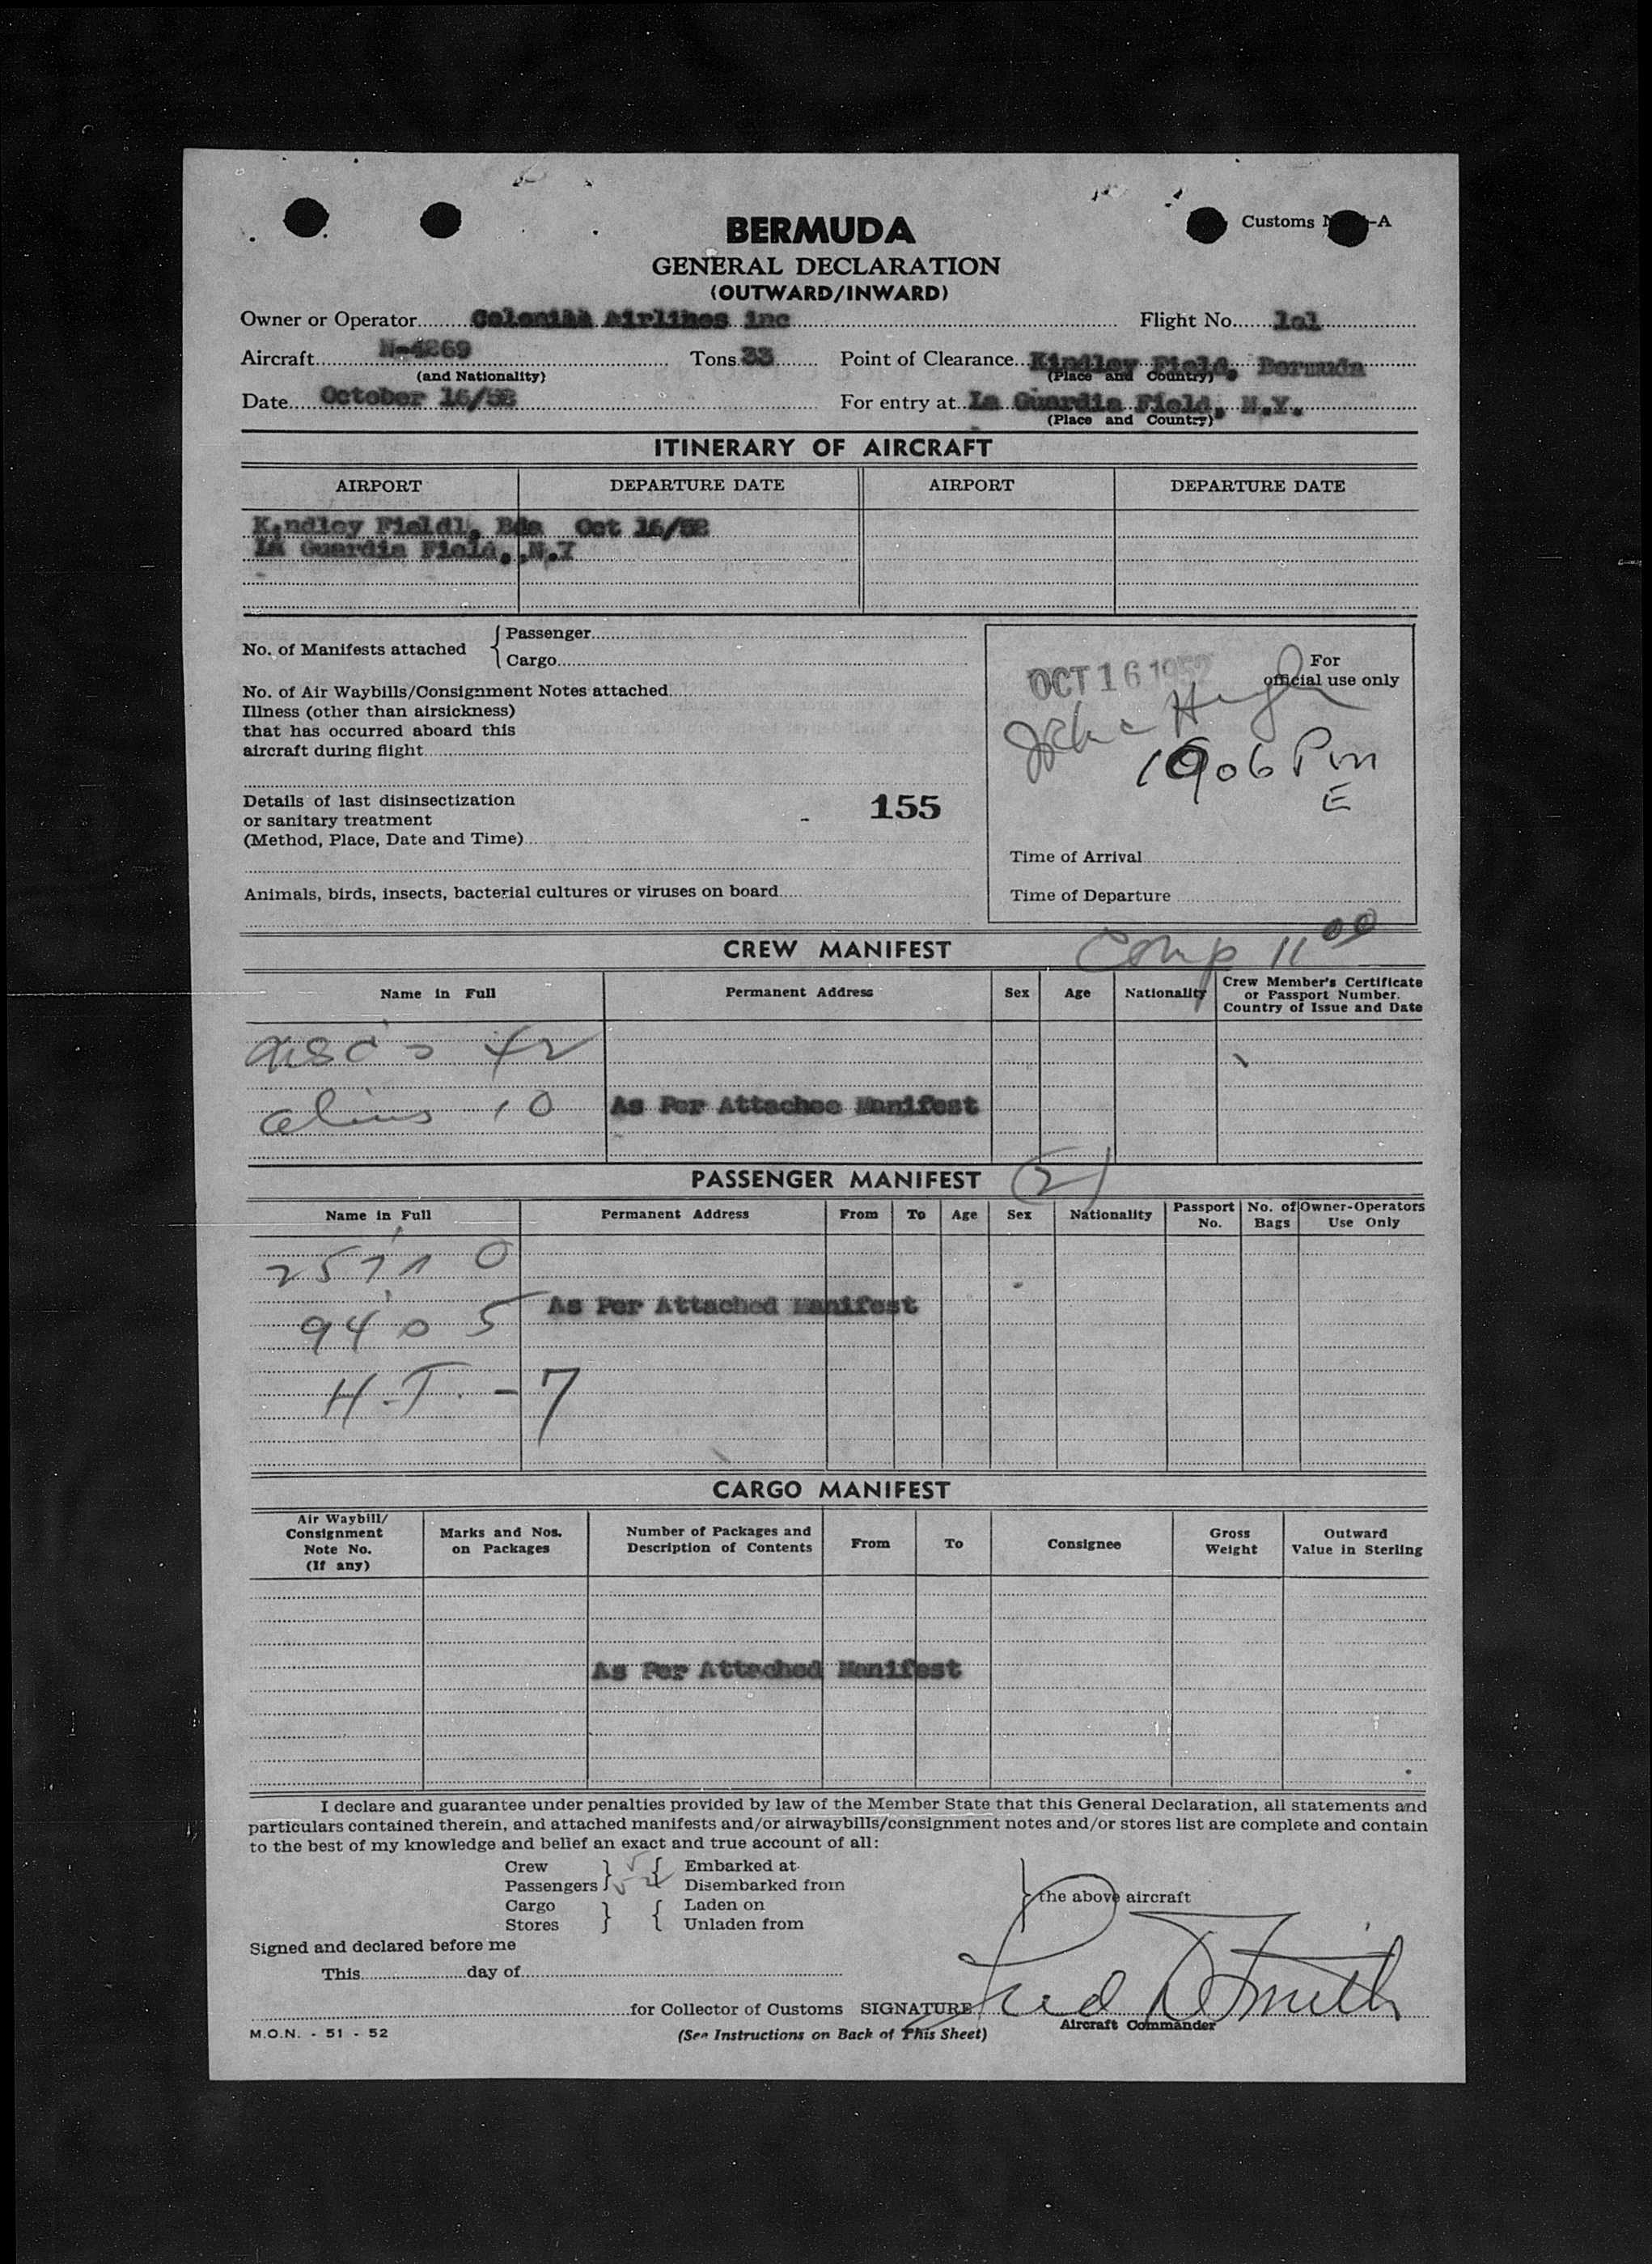 Customs -A
BERMUDA
GENERAL DECLARATION
(OUTWARD/INWARD)
Owner or Operator Airlines inc Flight No. 1o1
Aircraft N-4269 Tons 33 Point of Clearance Kindley Field, Bermuda
(and Nationality) (Place and Country)
Date October 16/52 For entry at La Guardia Field, N.Y.
(Place and Country)
ITINERARY OF AIRCRAFT
AIRPORT DEPARTURE DATE AIRPORT DEPARTURE DATE
K.ndley Fieldl, Bda Oct 16/52
La Guardia Field, N.Y
No. of Manifests attached { Passenger
Cargo
For
official use only
OCT 16 1952
No. of Air Waybills/Consignment Notes attached
Illness (other than airsickness)
that has occurred aboard this
aircraft during flight
1006 Pm
E
Details of last disinsectization
or sanitary treatment
(Method, Place, Date and Time)
155
Time of Arrival
Animals, birds, insects, bacterial cultures or viruses on board
Time of Departure
Comp 11 00
CREW MANIFEST
Name in Full Permanent Address Sex Age Nationality Crew Member's Certificate or Passport Number. Country of Issue and Date
USC's 42
aliens 10
As Per Attachee Manifest
PASSENGER MANIFEST (2)
Name in Full Permanent Address From To Age Sex Nationality Passport No. No. of Bags Owner-Operators Use Only
As Per Attached Manifest
9405
H.T. - 7
CARGO MANIFEST
Air Waybill/ Consignment Note No. (If any) Marks and Nos. on Packages Number of Packages and Description of Contents From To Consignee Gross Weight Outward Value in Sterling
As Per Attached Manifest
I declare and guarantee under penalties provided by law of the Member State that this General Declaration, all statements and
particulars contained therein, and attached manifests and/or airwaybills/consignment notes and/or stores list are complete and contain
to the best of my knowledge and belief an exact and true account of all:
Crew } { Embarked at
Passengers Disembarked from
} the above aircraft
Cargo } { Laden on
Stores Unladen from
Signed and declared before me
This day of
for Collector of Customs SIGNATURE Fred D Smith
Aircraft Commander
M.O.N. - 51 - 52
(See Instructions on Back of This Sheet)